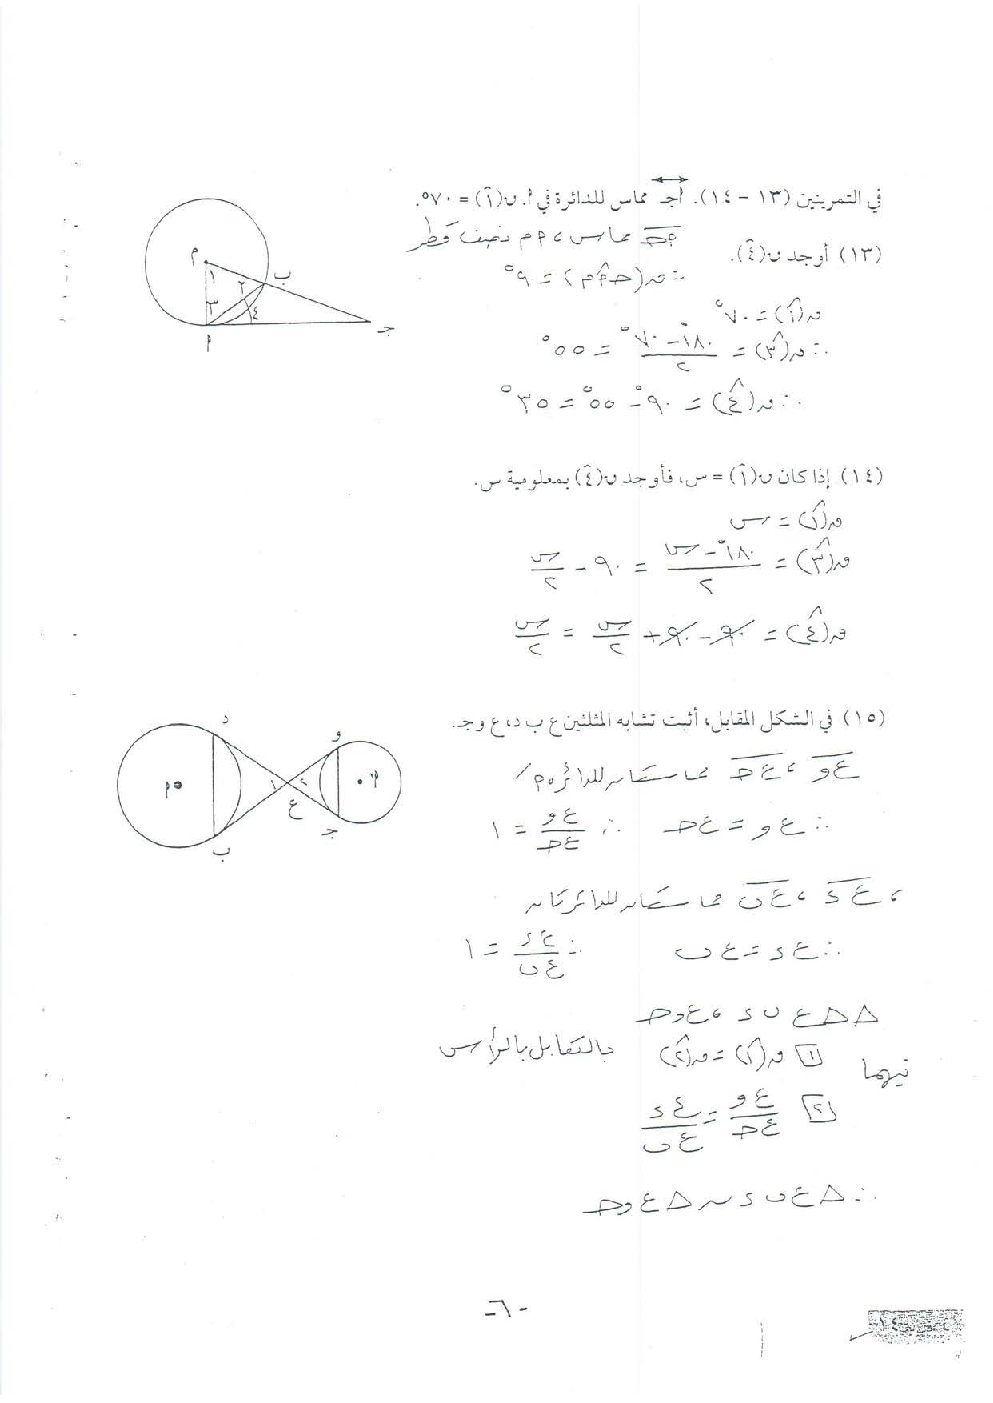 في التمرينين (١٣ - ١٤). أجـ مماس للدائرة في أ. ن(١̂) = ٧٠°.
جـ أ مماس ، أ م نصف قطر
(١٣) أوجد ن(٤̂).
∴ ن(جـ أ̂ م) = ٩٠°
ن(١̂) = ٧٠°
∴ ن(٣̂) = (١٨٠° - ٧٠°)/٢ = ٥٥°
∴ ن(٤̂) = ٩٠° - ٥٥° = ٣٥°
م
١
ب
٢
٣
٤
جـ
أ
(١٤) إذا كان ن(١̂) = س، فأوجد ن(٤̂) بمعلومية س.
ن(١̂) = س
ن(٣̂) = (١٨٠° - س)/٢ = ٩٠ - س/٢
ن(٤̂) = ٩٠ - ٩٠ + س/٢ = س/٢
(١٥) في الشكل المقابل، أثبت تشابه المثلثين ع ب د، ع و جـ.
د
و
م
١
٢
ع
جـ
ب
ع و ، ع جـ مماستان للدائرة م/
∴ ع و = ع جـ ∴ ع و/ع جـ = ١
، ع د ، ع ب مماستان للدائرتان
∴ ع د = ع ب ∴ ع د/ع ب = ١
△△ ع ب د ، ع و جـ
فيهما [١] ن(١̂) = ن(٢̂) بالتقابل بالرأس
[٢] ع و/ع جـ = ع د/ع ب
∴ △ ع ب د ~ △ ع و جـ
-٦٠-